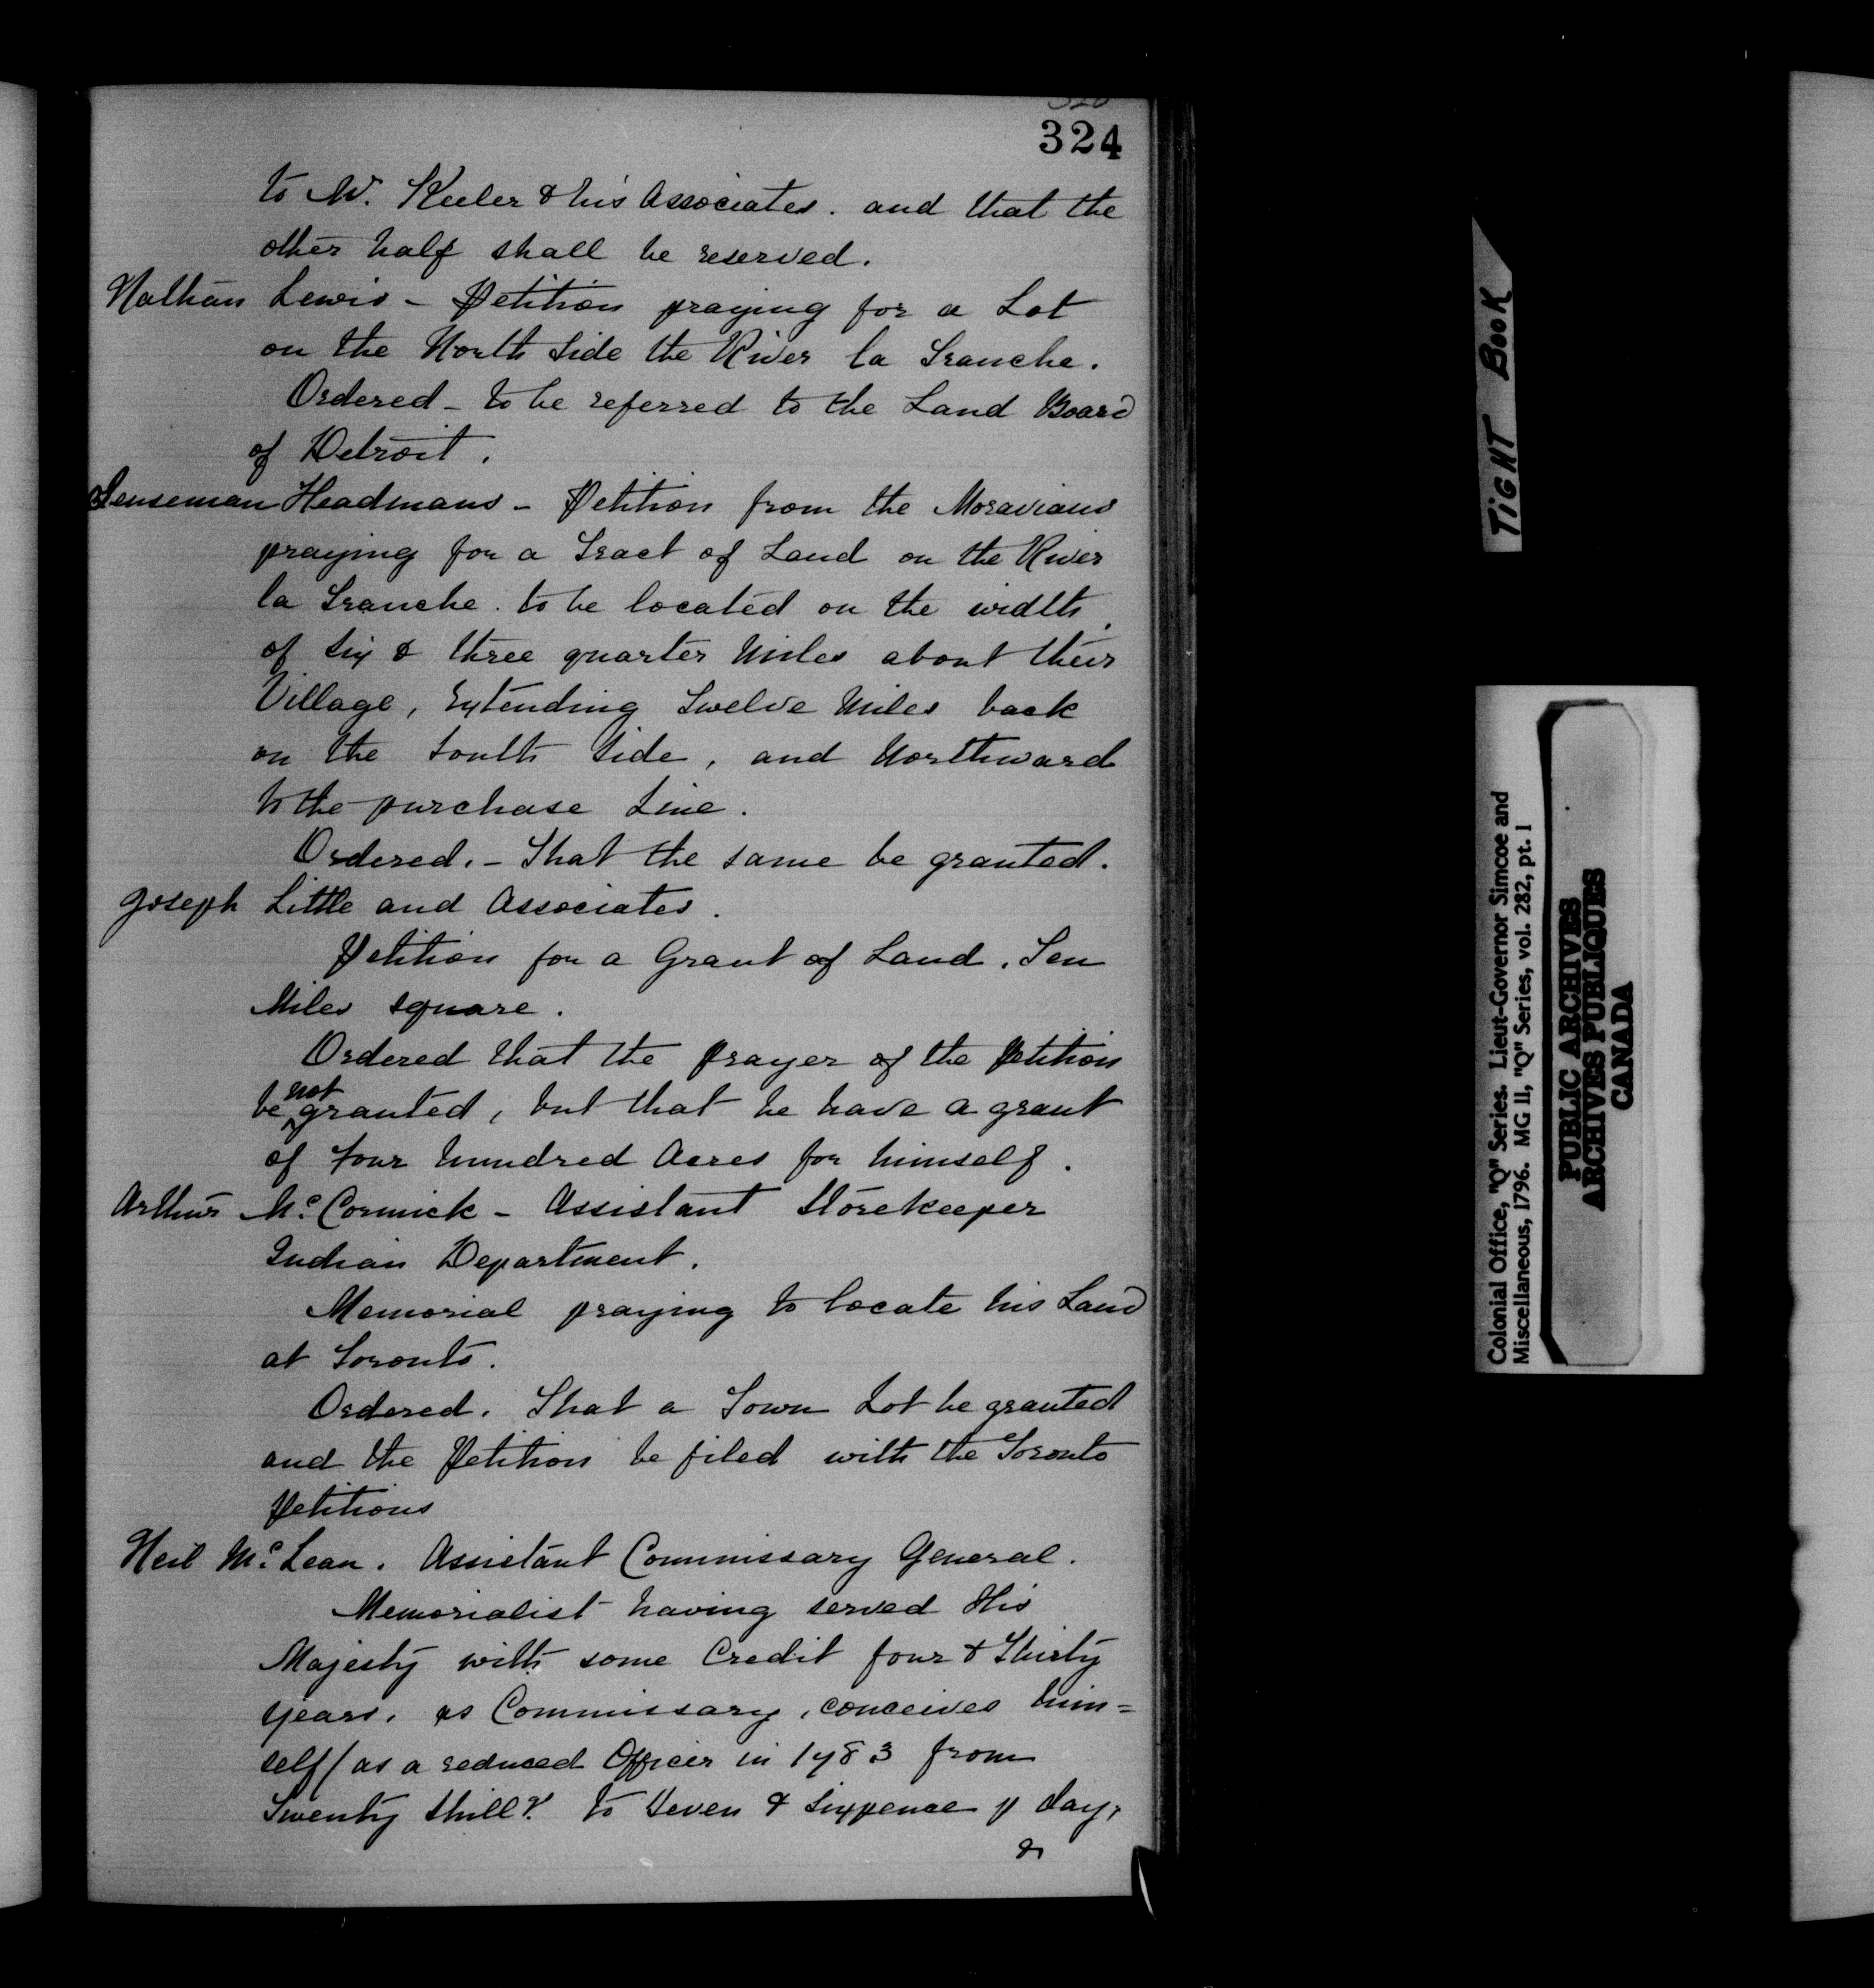 324
to Mr. Keeler & his Associates. and that the
other half shall be reserved.
Nathan Lewis - Petition praying for a Lot
on the North Side the River la Tranche.
Ordered - to be referred to the Land Board
of Detroit.
Senseman Headmans - Petition from the Moravians
praying for a Tract of Land on the River
la Tranche. to be located on the width
of six & three quarter Miles about their
Village, Extending Twelve Miles back
on the South Side, and Northward
to the purchase Line.
Ordered. - That the same be granted.
Joseph Little and Associates.
Petition for a Grant of Land. Ten
Miles square.
Ordered that the prayer of the Petition
be not granted, but that he have a grant
of four hundred Acres for himself.
Arthur McCormick - Assistant Storekeeper
Indian Department.
Memorial praying to locate his Land
at Toronto.
Ordered. That a Town Lot be granted
and the Petition be filed with the Toronto
Petitions
Neil McLean. Assistant Commissary General.
Memorialist having served His
Majesty with some Credit four & Thirty
years. as Commissary, conceives him=
self (as a reduced Officer in 1783 from
Twenty Shills. to Seven & Sixpence p day,
TIGHT BOOK
Colonial Office, "Q" Series. Lieut-Governor Simcoe and
Miscellaneous, 1796. MG 11, "Q" Series, vol. 282, pt. 1
PUBLIC ARCHIVES
ARCHIVES PUBLIQUES
CANADA